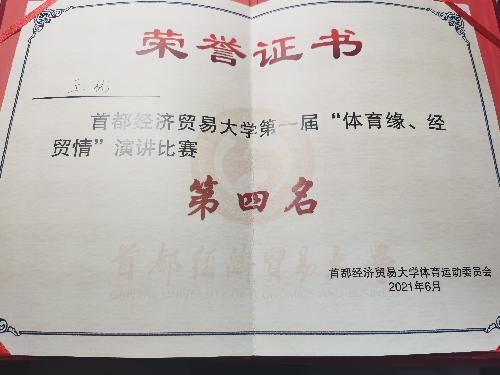 荣誉证书
首都经济贸易大学第一届“体育缘、经
贸情”演讲比赛
第四名
首都经济贸易大学
首都经济贸易大学体育运动委员会
2021年6月